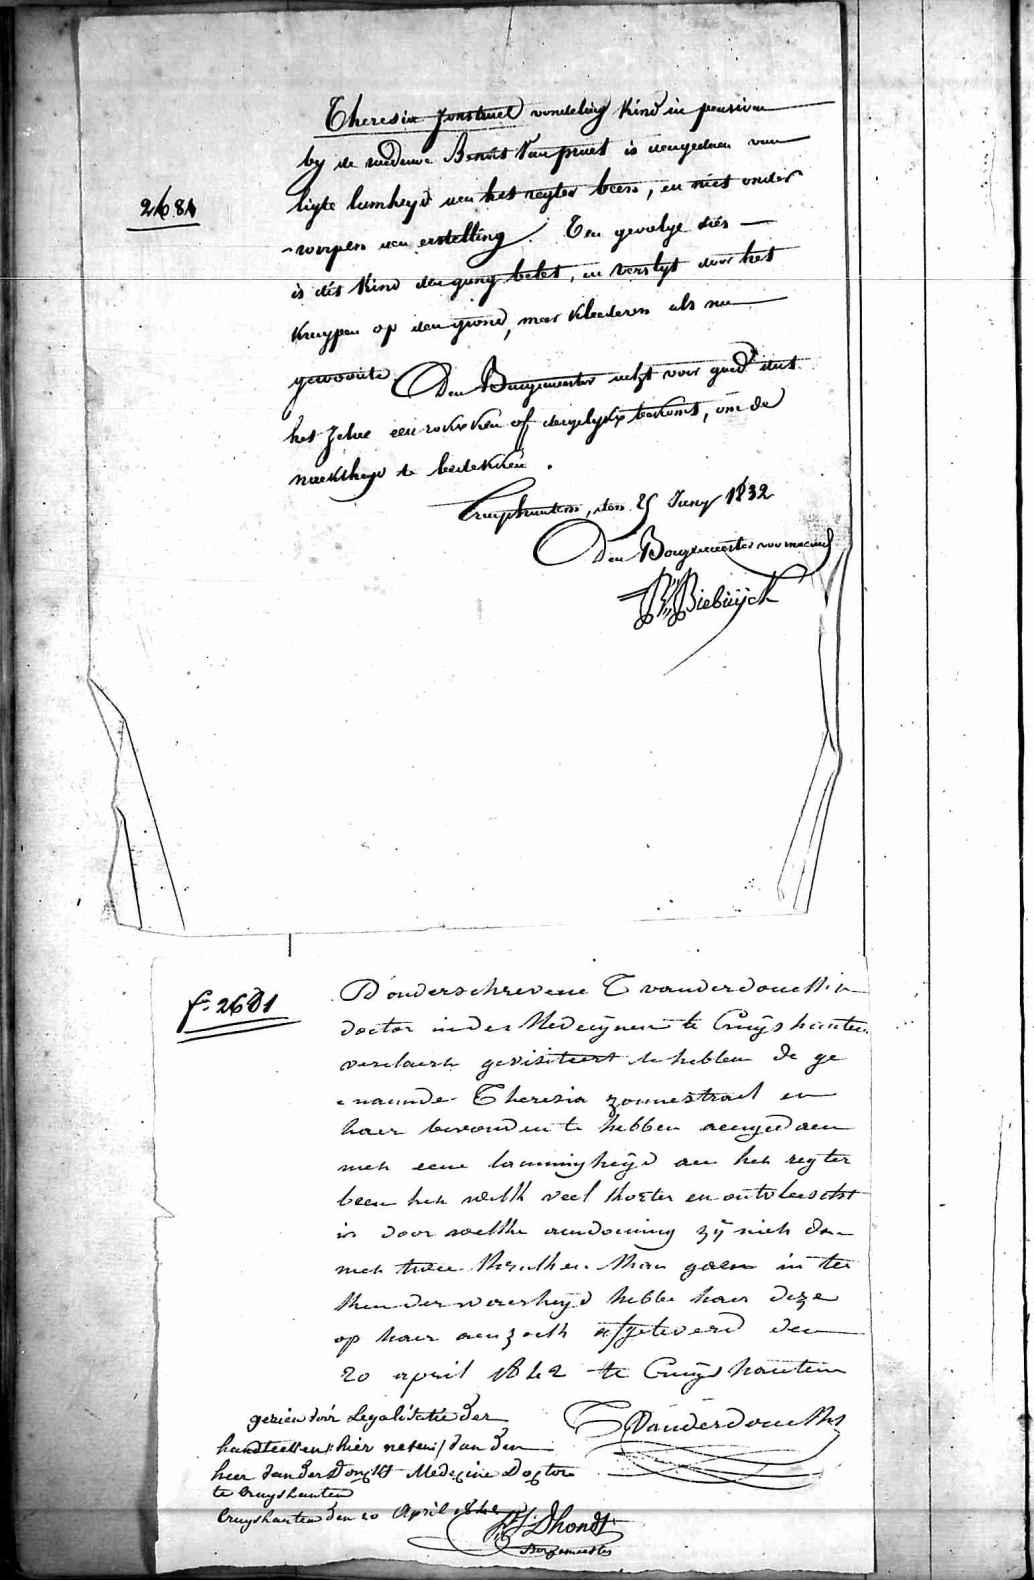 Theresia Zonstrael vondeling kind in pensioen
by de weduwe Benoit Van praet is aengedaen van
2681
ligte lamheyd aen het regter been, en niet onder
-worpen aen erstelling. Ten gevolge dies
is dit kind den gang belet, en verslyt door het
kruypen op den grond, meer kleederen als na
gewoonte. Den Burgemeester acht voor goed dat
het zelve een rokxken of dergelykx bekomt, om de
naektheyd te bedekken.
Cruyshautem, den 25 Juny 1832
Den Borgemeester voornoemd
Biebuÿck
f. 2681
D'onderschrevene T vanderdonckt
doctor in der Medecynen te Cruÿshautem
verclaert gevisiteert te hebben de ge
naemde Theresia zonnestrael en
haer bevonden te hebben aengedaen
met eene lammigheÿd aen het regter
been het welk veel korter en ontvleescht
is door welke aendoening zÿ niet dan
met twee krukken kan gaen in tee
ken der waerheÿd hebbe haer deze
op haer aenzoek afgeleverd den
20 april 1842 te Cruÿshautem
T Vanderdonckt
gezien voor Legalisatie der
handteeken hier neven van den
heer Van der Donckt Medecine Doctor
te Cruyshautem
Cruyshautem den 20 April 1842
Dhondt
Borgemeester